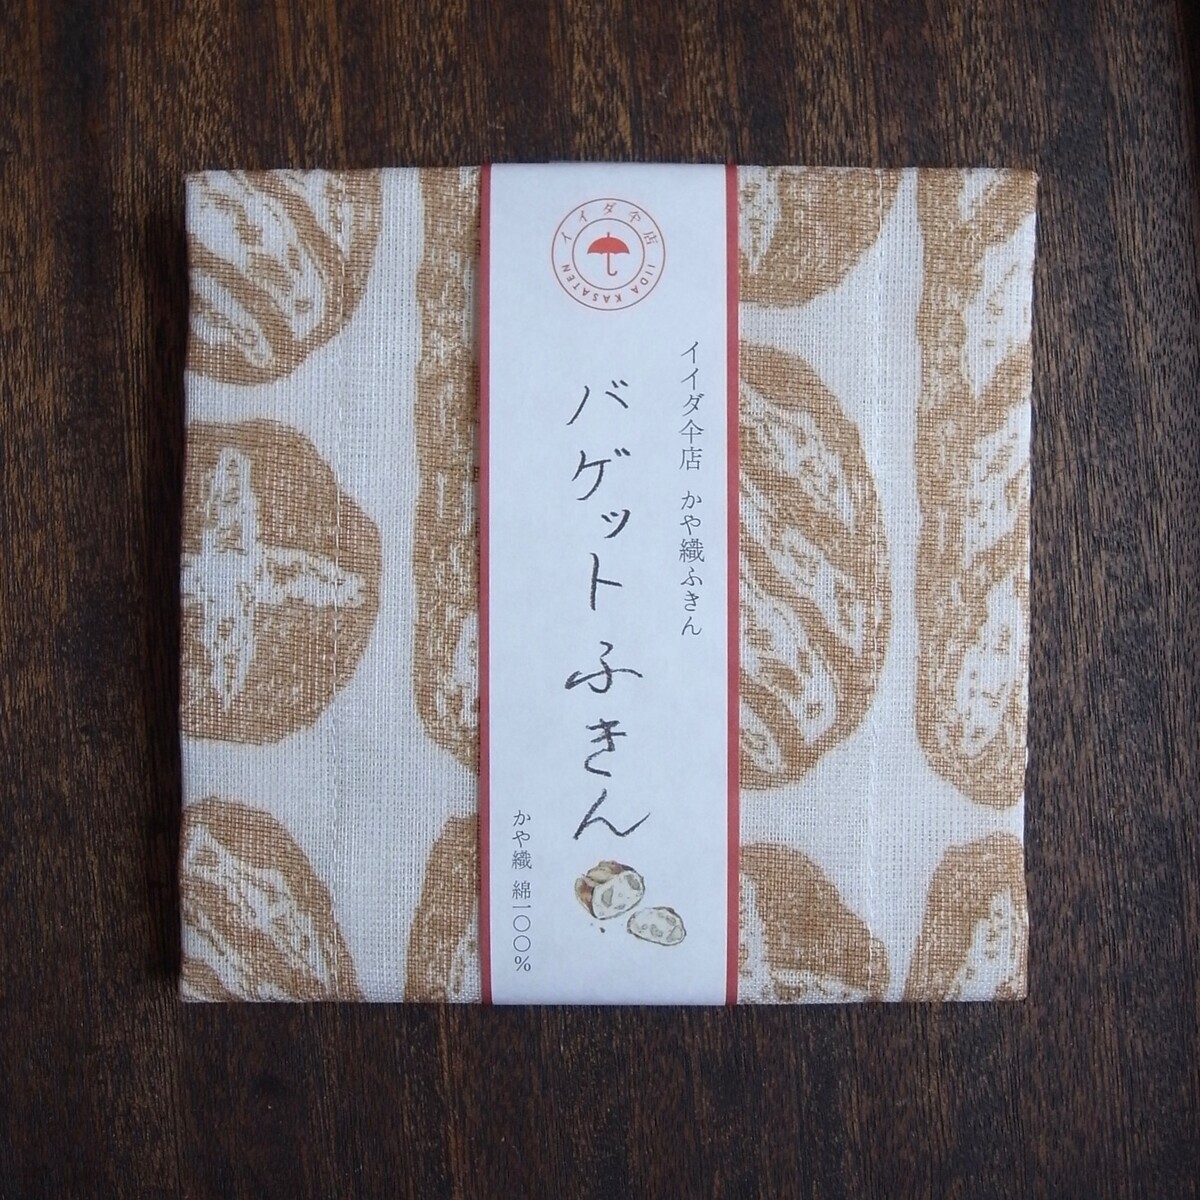 イイダ傘店
IIDA KASATEN
イイダ傘店 かや織ふきん
バゲットふきん
かや織 綿一〇〇%